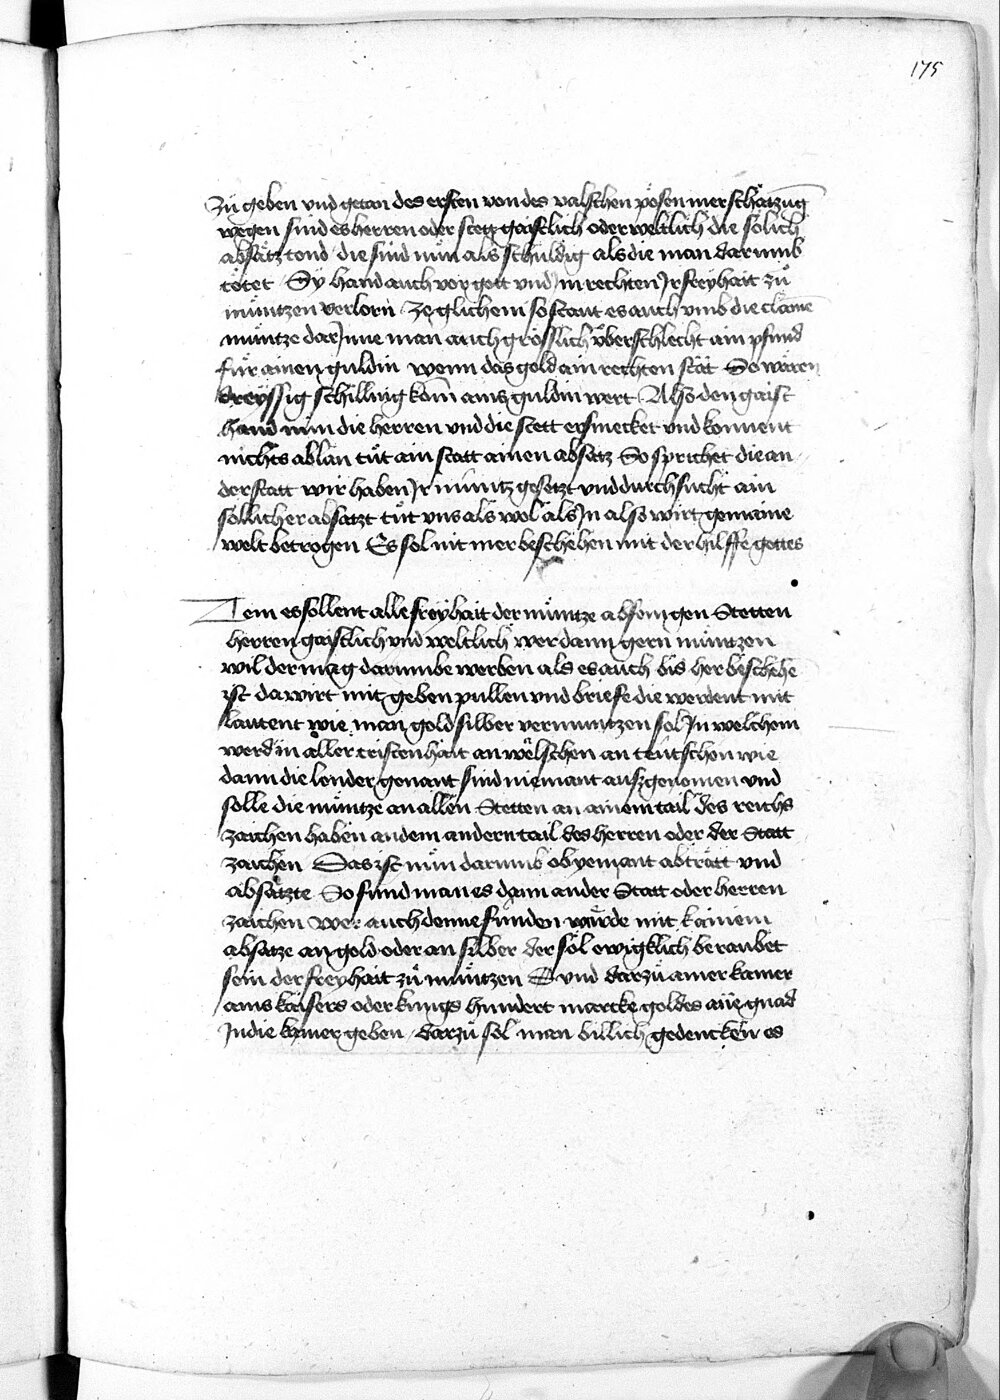 175
Zů geben vnd getan des ersten von des valschen pösen mer schätzūg
wegen sind es herren oder stett gaistlich oder weltlich die sölich
absätz tond die sind nůn als schuldig als die man darumb
tötet Sy hand auch vor gott vnd Jm rechten Jr freyhait zů
müntzen verlorn Ze glichem so staut es auch vmb die clainē
müntze dar Jnne man auch grösslich v̈berschlecht ain pfund
für ainen guldin wenn das gold ain rechten stät So wären
dreyssig schilling kom ains guldin wert Also den gaist
hand nun die herren vnd die stett ersmecket vnd konnent
nichts ablān tůt ain statt ainen absätz So sprichet die an
der statt wir haben Jr müntz gesetzt vnd durchsücht ain
söllicher absatzt tůt vns als wol als Jn also wirt gemaine
welt betrogen Es sol nit mer beschehen mit der hilffe gottes
Item es söllent alle freyhait der müntze absein gen Stetten
herren gaistlich vnd weltlich wer dann gern müntzen
wil der mag darumbe werben als es auch bis her beschehē
ist da wirt mit geben pullen vnd briefe die werdent mit
lautent wie man gold silber vermuntzen sol Jn welchem
werd in aller cristenhait an wëlschen an teutschen wie
dann die lender genant sind niemant aufzgenomen vnd
solle die müntze an allen Stetten an ainem tail des reichs
zaichen haben an dem andern tail des herren oder der Statt
zaichen Das ist nůn darumb ob yemant abträtt vnd
absätzte So fund man es dann an der Statt oder herren
zaichen Wer auch denne funden würde mit kainem
absätze an gold oder an silber der sol ewigklich beraubet
sein der freyhait zů müntzen vnd darzů ainer kamer
ains kaisers oder kunigs hundert marcke goldes an̄e gnad
Jn die kamer geben darzů sol man billich gedencken es